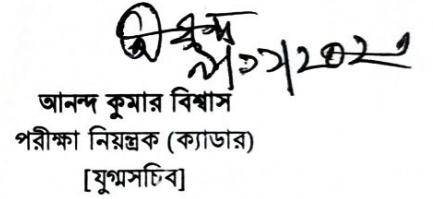 আনন্দ কুমার বিশ্বাস
পরীক্ষা নিয়ন্ত্রক (ক্যাডার)
[যুগ্মসচিব]